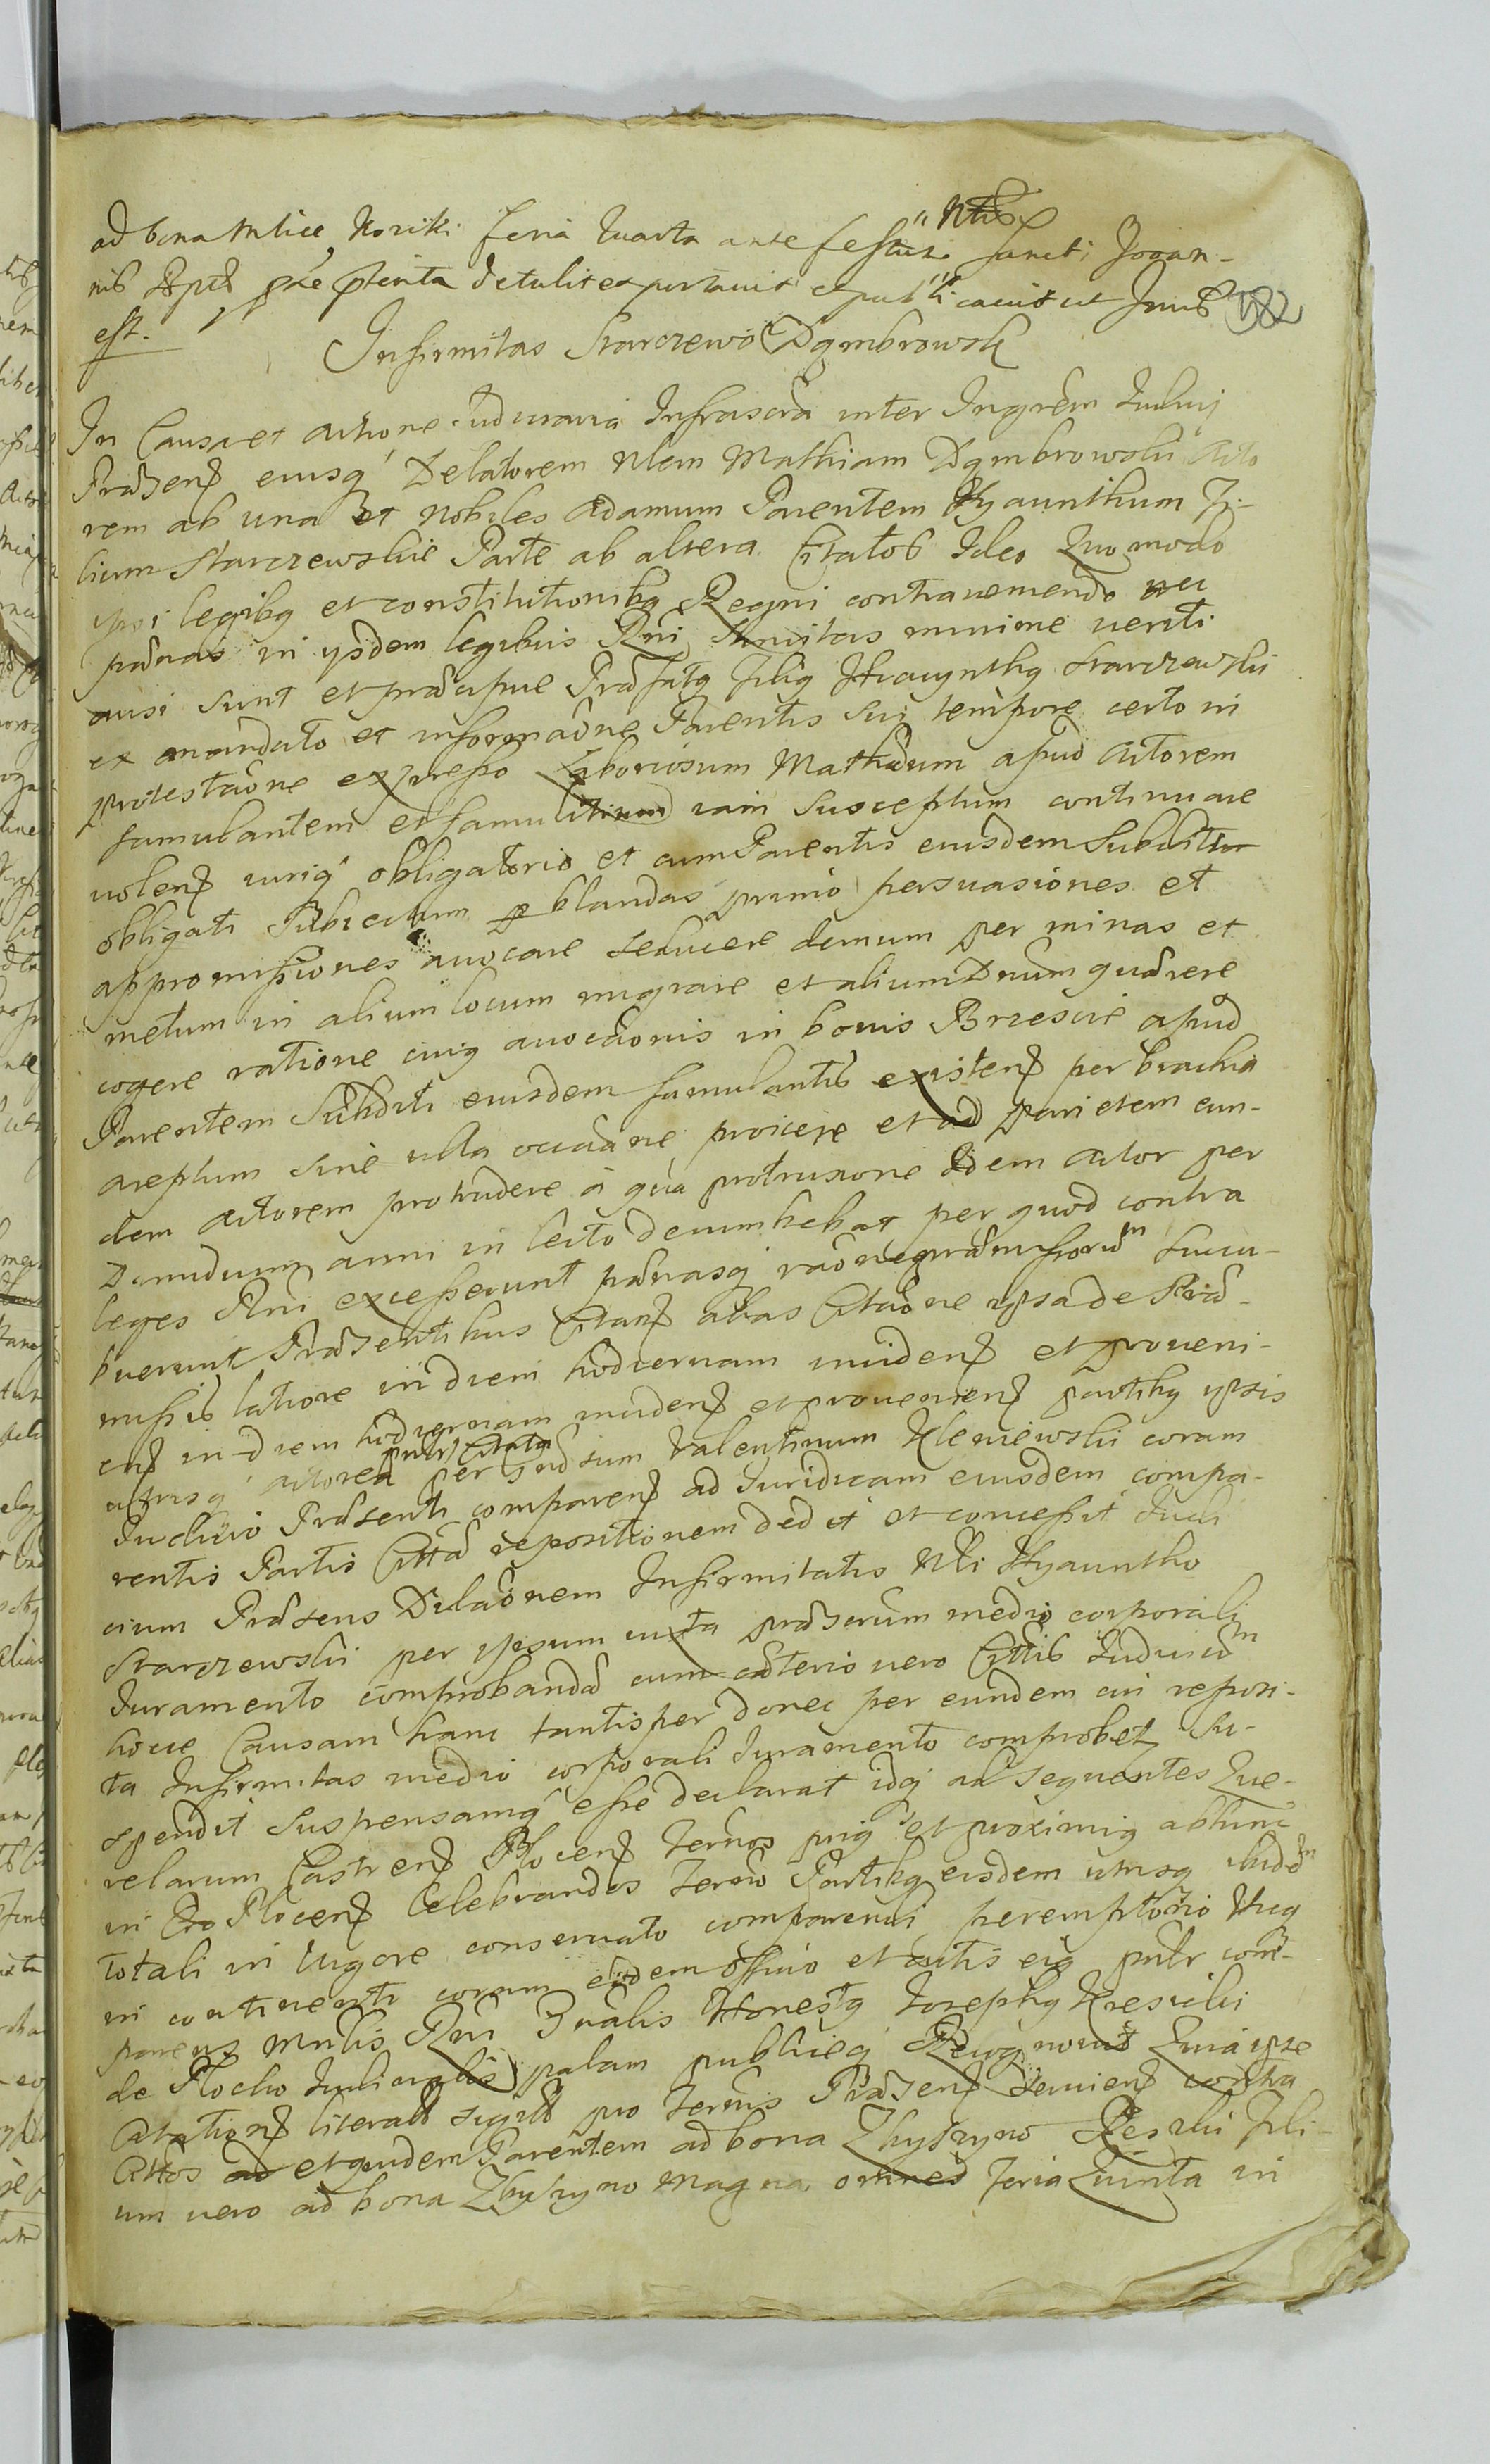 ad bona Mlice Noriki feria quarta ante festum Ntis sancti Joan-
nis Bptae prae pterita detulit et portavit et publicavit ut Juris 582
est.
Infirmitas Starczewo Dąmbrowsk
In Causa et actione iudiciaria Infrascra inter Ingrem Iudicij
Praesens eiusq Delatorem Nlem Mathiam Dąmbrowski Acto
rem ab una et Nobiles Adamum Parentem Hyacinthum Fi-
lium Starczewskie Parte ab altera Citatos Ideo Quomodo
ipsi legibq et constitutionibq Regni contraveniendo nec
paenas in ysdem legibus Rni sancitas minime veriti
ausi sunt et praecipue Praefatq filiq Hiacynthq Starczewski
ex mandato et informaone Parentis sui tempore certo in
protestaone expresso Laboriosum Mathaeum apud Actorem
famulantem et famulitium iam susceptum continuare
volens iuriq obligatorio et cum Parentis eiusdem Subditi
obligati Subiectum p blandas primo persuasiones et
appromissiones avocare seducere demum per minas et
metum in alium locum migrare et alium Dnum quaerere
cogere ratione cuiq avocaonis in bonis Brzescie apud
Parentem Subditi eiusdem famulantis existens per brachia
areptum sine ulla occaone proicere et ad parietem eun-
dem Actorem protrudere a qua protrusione Idem Actor per
Dimidium anni in lecto decumbebat per quod contra
leges Rni excesserunt paenasq raone praemissorum succu-
buerunt Praesentibus Citans alias Citaone ipsa de Prae-
missis latiore in diem hodiernam incidens et proveni-
ens in diem hodiernam incidens et proveniens Partibq ipsis
utrisq Actorea pntr Citata per Nblsum Valentinum Kleniewski coram
Iudicio Praesenti comparens ad Iuridicam eiusdem compa-
rentis Partis Citta repositionem dedit et concessit Iudi
cium Praesens Dilaonem Infirmitatis Nli Hyacintho
Starczewski per ipsum iuxta praescrum medio corporali
Iuramento comprobanda cum caeterio vero Cittis Iudiciu
hocce Causam hanc tantisper donec per eundem cui reposi-
ta Infirmitas medio corporali Iuramento comprobetr Su-
spendit suspensamq esse declarat idq ad sequentes Que-
relarum Castrens Plocens Ternos priq et proximiq abhinc
in Cro Plocens Celebrandos Terno Partibq eisdem utrisq ibidem
totali in vigore conservato comparendi peremptorio Huq
in continenti coram eodem officio et actis eiq pntr com-
parens Mnlis Rni Gnalis Honestq Josephq Kresicki
de Plocko Iudicialis palam publiceq Recognovit Quia ipse
Citations literales sigills pro Ternis Praesens serviens contra
Cittos ad et quidem Parentem ad bona Zbyszyno Reszki fili-
um vero ad bona Zbyszyno Magna omnes feria Quinta in